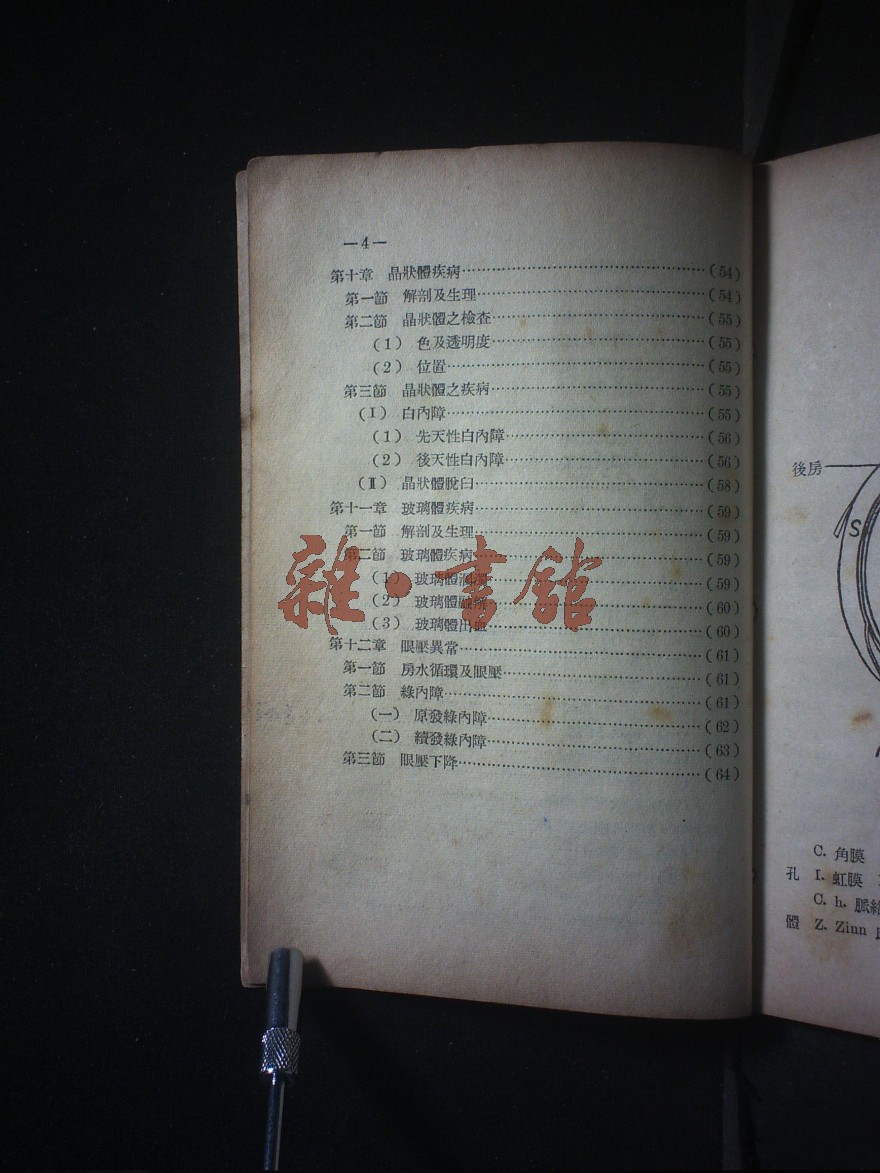 —4—
第十章 晶狀體疾病……(54)
第一節 解剖及生理……(54)
第二節 晶狀體之檢查……(55)
(1) 色及透明度……(55)
(2) 位置……(55)
第三節 晶狀體之疾病……(55)
(I) 白內障……(55)
(1) 先天性白內障……(56)
(2) 後天性白內障……(56)
(II) 晶狀體脫臼……(58)
第十一章 玻璃體疾病……(59)
第一節 解剖及生理……(59)
第二節 玻璃體疾病……(59)
(1) 玻璃體……(59)
(2) 玻璃體……(60)
(3) 玻璃體出血……(60)
第十二章 眼壓異常……(61)
第一節 房水循環及眼壓……(61)
第二節 綠內障……(61)
(一) 原發綠內障……(62)
(二) 續發綠內障……(63)
第三節 眼壓下降……(64)
雜·書館
後房
S
C. 角膜
孔 I. 虹膜
C. h. 脈絡
體 Z. Zinn